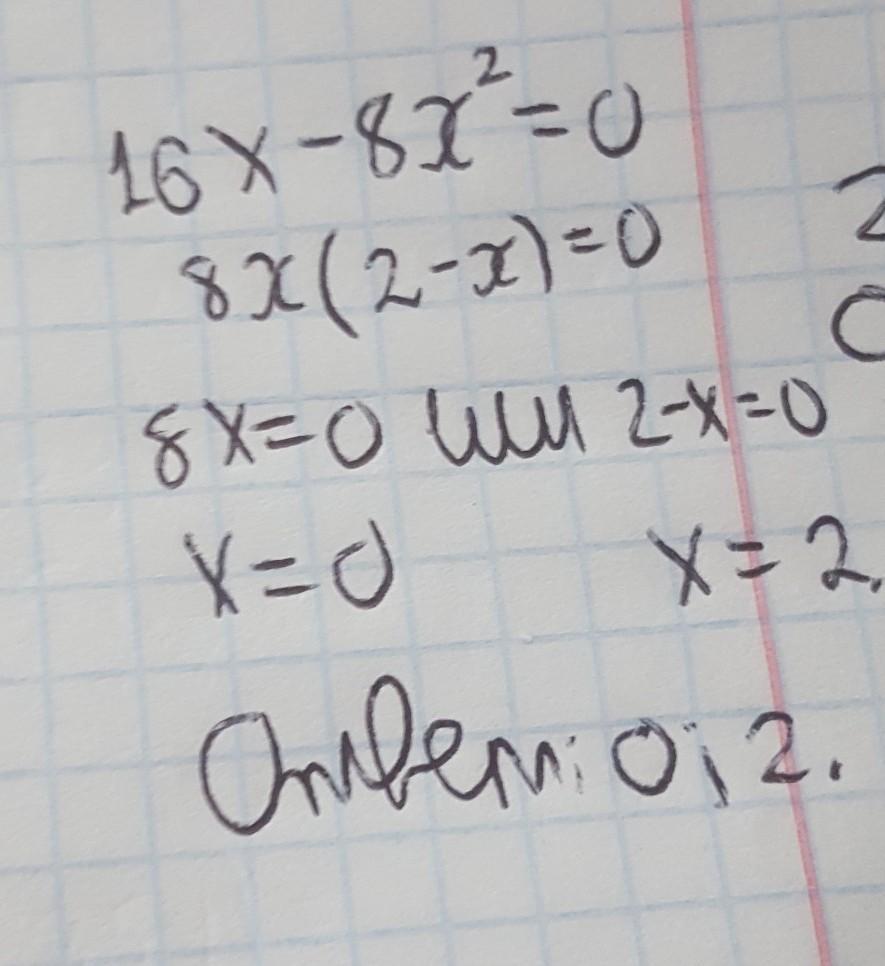 16x-8x²=0
8x(2-x)=0
8x=0 или 2-x=0
x=0 x=2.
Ответ: 0; 2.